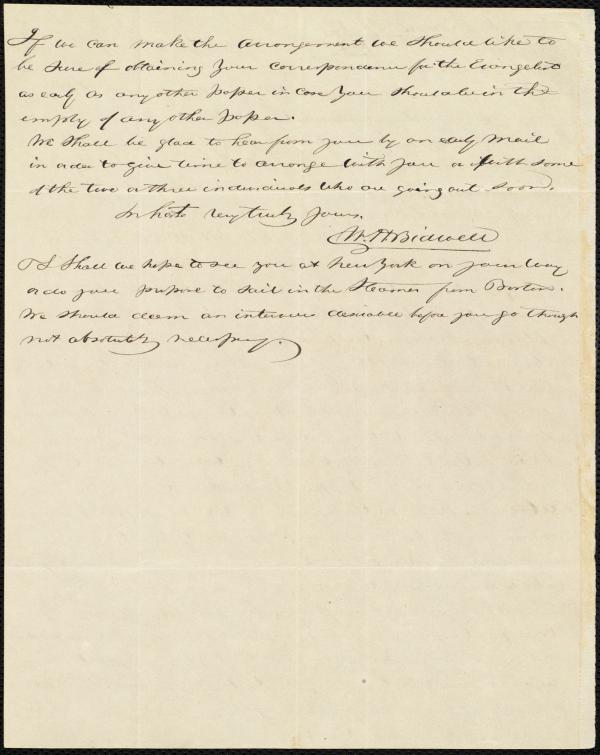 If we can make the arrangement we should like to
be sure of obtaining your correspondence for the Evangelist
as early as any other paper in case you should be in the
employ of any other paper.
We shall be glad to hear from you by an early mail
in order to give time to arrange with you or with some
of the two or three individuals who are going out soon.
In haste very truly yours,
W. H. Bidwell
PS Shall we hope to see you at New York on your way
or do you propose to sail in the Steamer from Boston.
We should deem an interview desirable before you go though
not absolutely necessary.